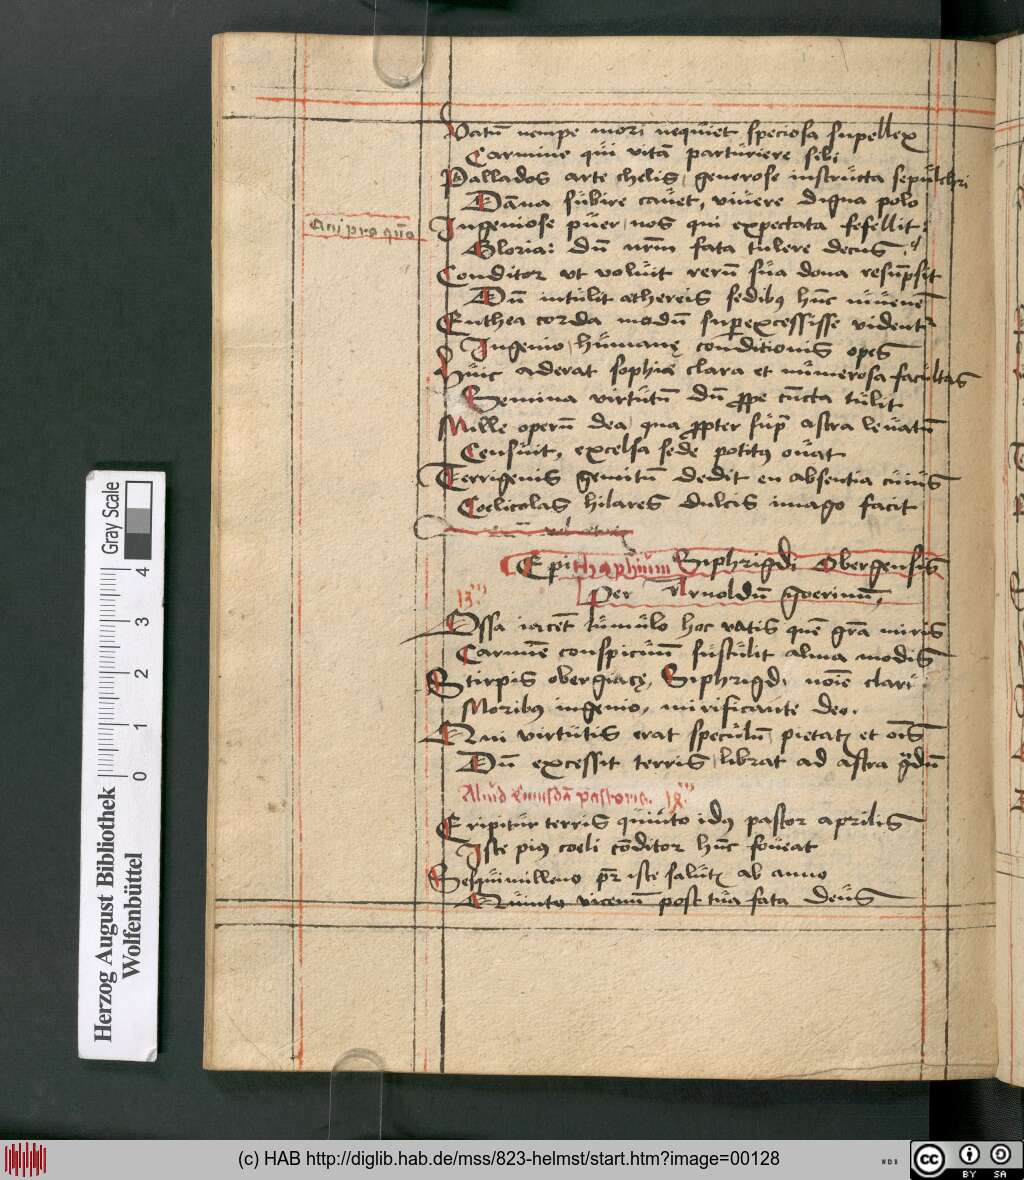 Vatū nempe mori nequiet speciosa supellex
Carmine qui vitā parturiere sibi
Pallados arte chelis, generose instructa sepulchri
Dāna subire cavet, vivere digna polo
Ani pro quo
Ingeniose puer, nos qui expectata fefellit:
Gloria: dū nrm̄ fata tulere decus:
Conditor ut voluit rerū sua dona resūpsit
Dū intulit ethereis sedibꝰ hūc iuvenē
Enthea corda modū superexcessisse videntr
Ingenio, humanę conditionis opes
Huic aderat sophiae clara et numerosa facultas
Semina virtutū dū ꝓpe cūcta tulit
Mille operū dea, qua ꝓpter sup astra levatū
Censuit, excelsa sede potitꝰ ovat
Terrigenis gemitū dedit en absentia cuius
Coelicolas hilares dulcis imago facit
Epithaphium Siphrigdi Obergensis
Per Arnoldū goerinū,
Ossa iacēt tumulo hoc vatis quē gr̄a miris
Carmīe conspicuū sustulit alma modis
Stirpis obergiacę, Siphrigdi noīe clari
Moribꝰ ingenio, mirificante deo.
Qui virtutis erat speculū, pietatꝭ et oīs
Dū excessit terris, librat ad astra gͣdū
Aliud Eiusdā pastoris.
Eripitur terris quinto idꝰ pastor aprilis
Iste piꝰ coeli cōditor hūc foveat
Sesquimilleno pr̄ iste salutꝭ ab anno
Quinto vicenū post tua fata deus
Herzog August Bibliothek
Wolfenbüttel
0 1 2 3 4
Gray Scale
(c) HAB http://diglib.hab.de/mss/823-helmst/start.htm?image=00128
cc BY SA